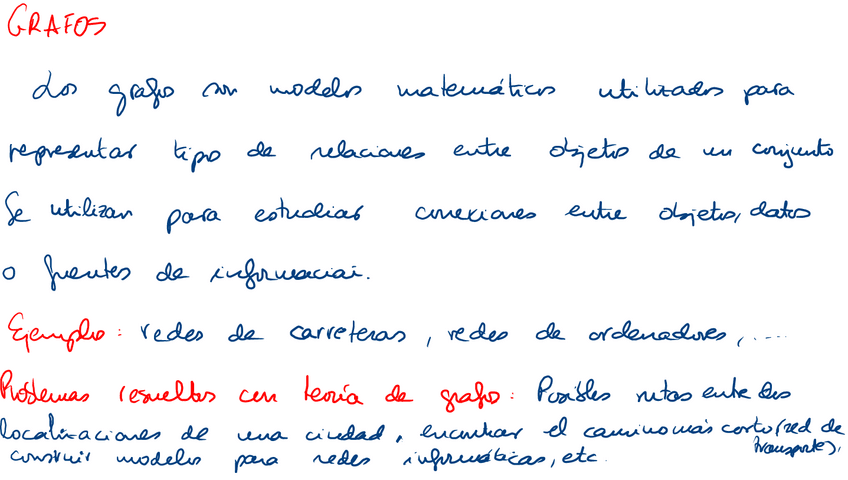 GRAFOS
Los grafos son modelos matemáticos utilizados para
representar tipo de relaciones entre objetos de un conjunto
Se utilizan para estudiar conexiones entre objetos, datos
o fuentes de información.
Ejemplo: redes de carreteras, redes de ordenadores, ....
Problemas resueltos con teoría de grafo: Posibles rutas entre dos
localizaciones de una ciudad, encontrar el camino más corto (red de
transporte),
construir modelos para redes informáticas, etc.